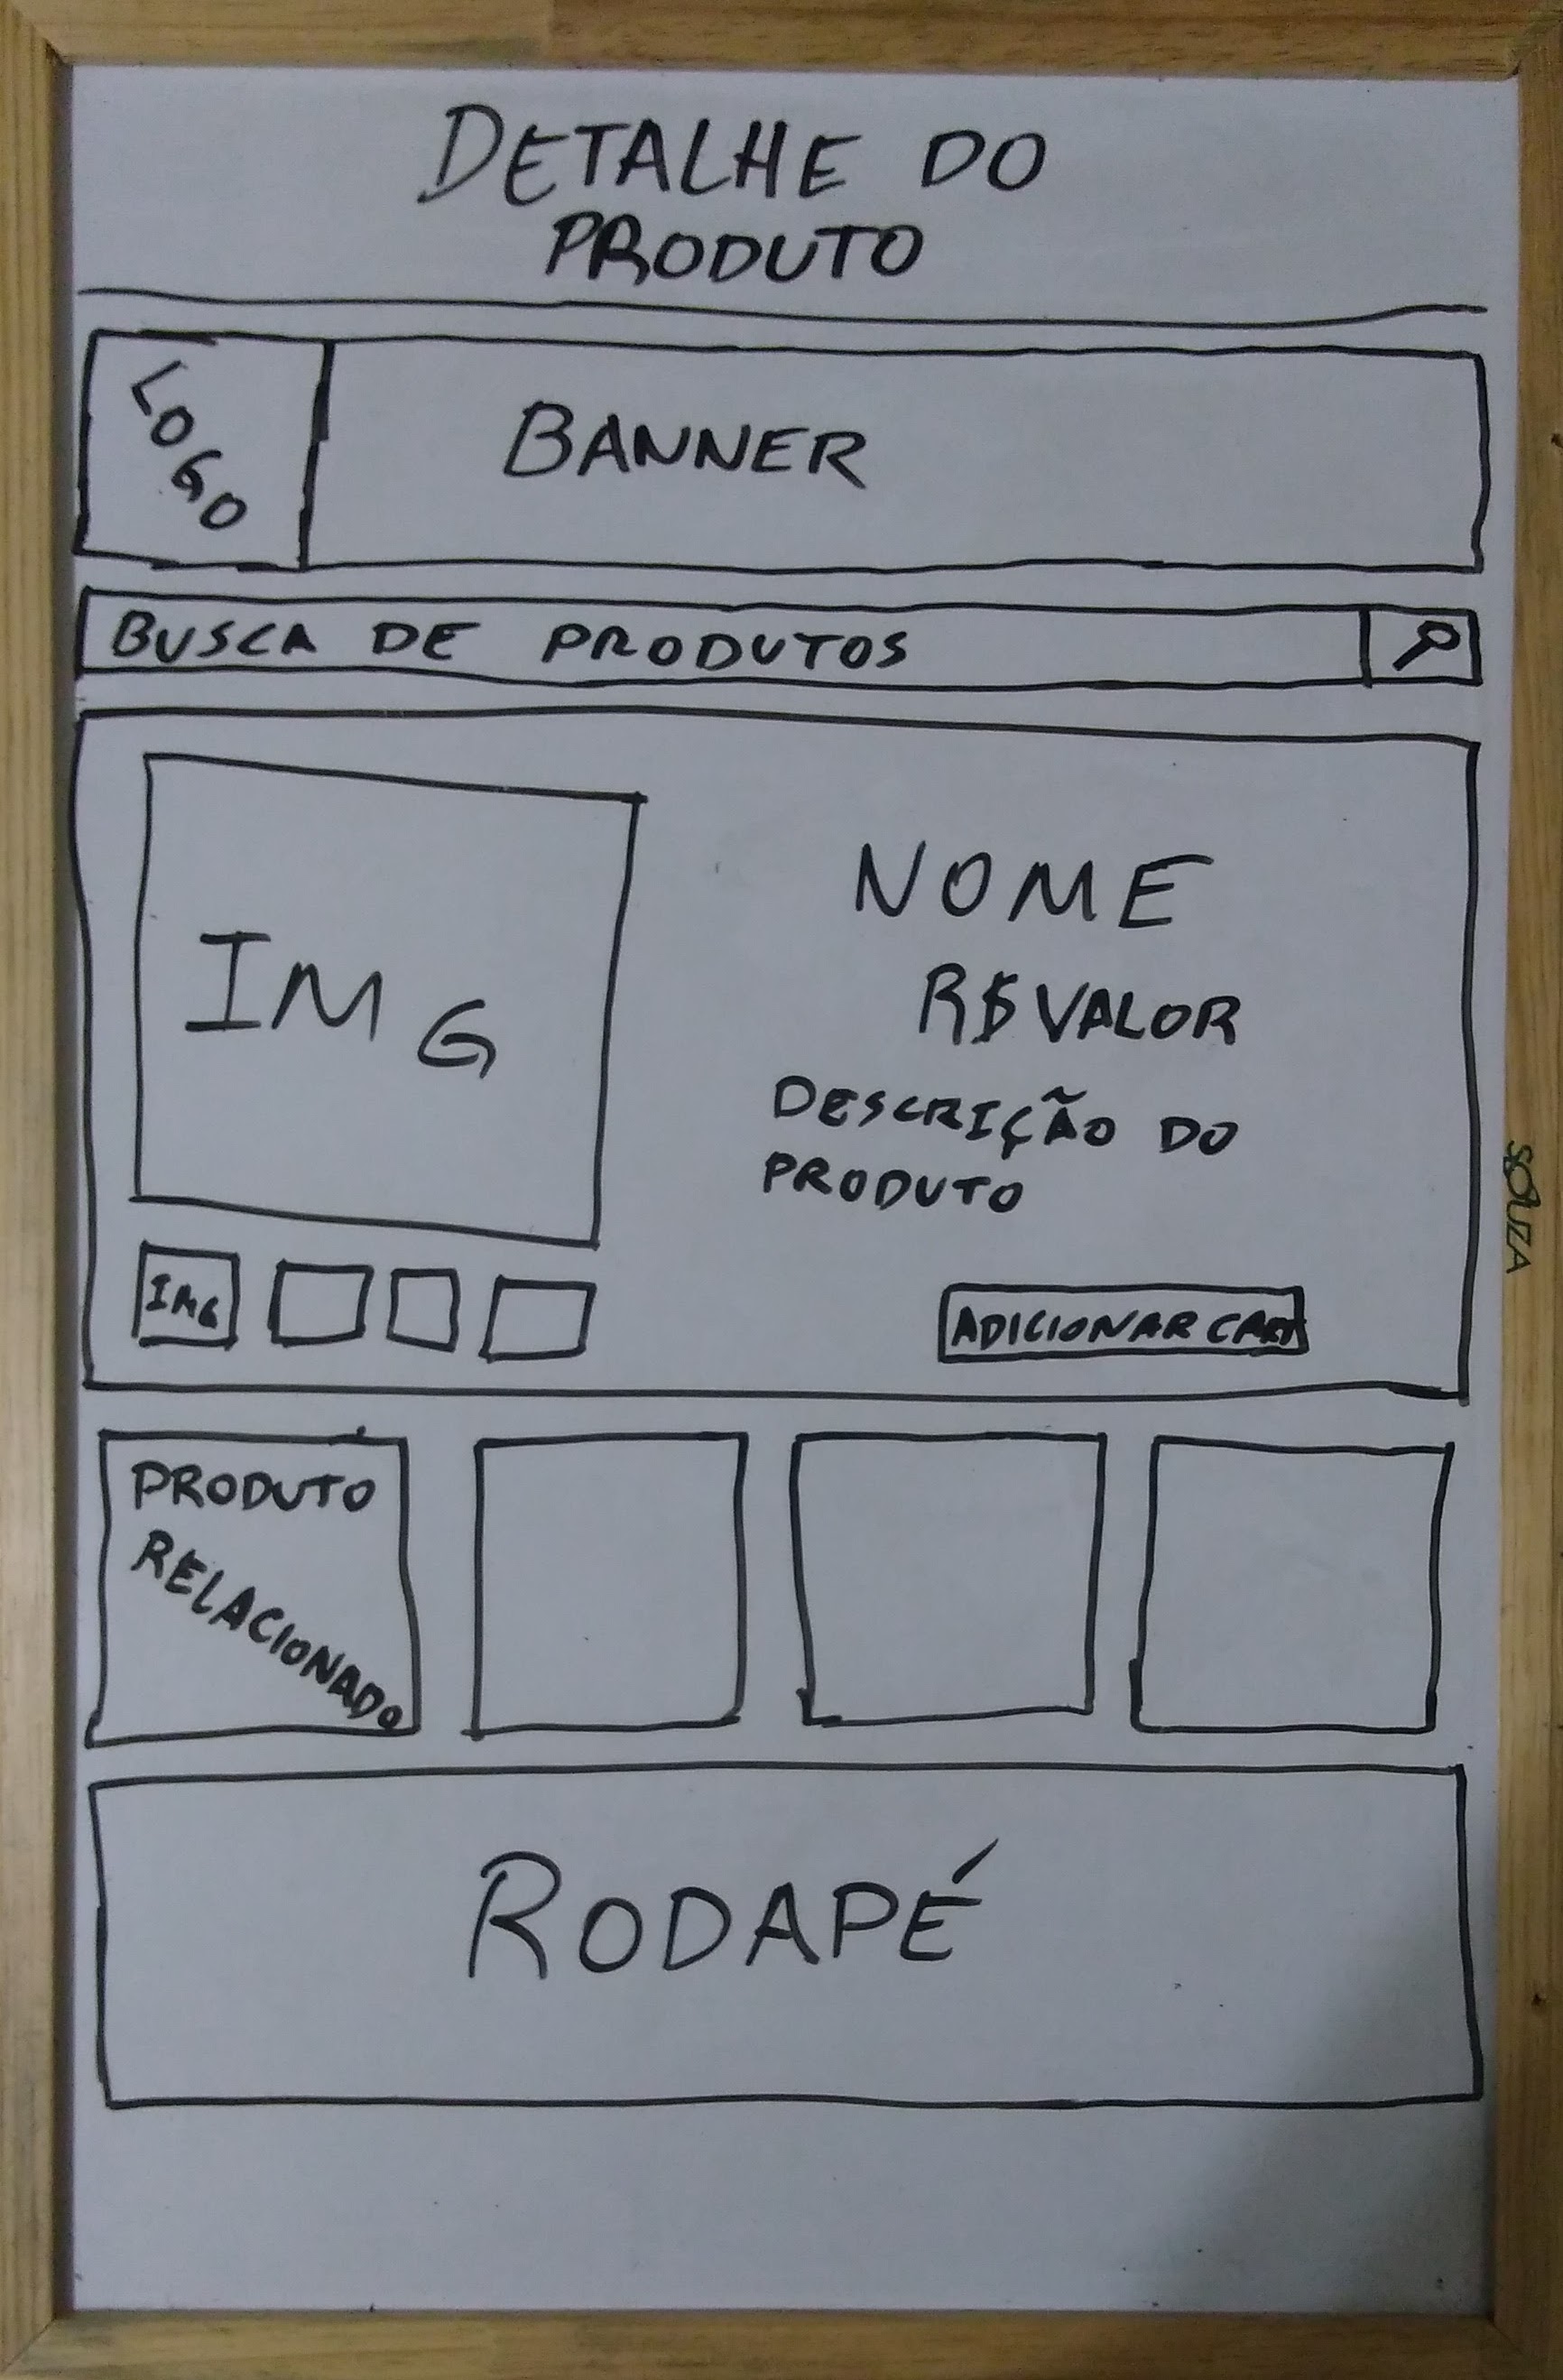 DETALHE DO
PRODUTO
LOGO
BANNER
BUSCA DE PRODUTOS
IMG
NOME
R$ VALOR
DESCRIÇÃO DO
PRODUTO
IMG
ADICIONAR CART
PRODUTO
RELACIONADO
RODAPÉ
SOUZA